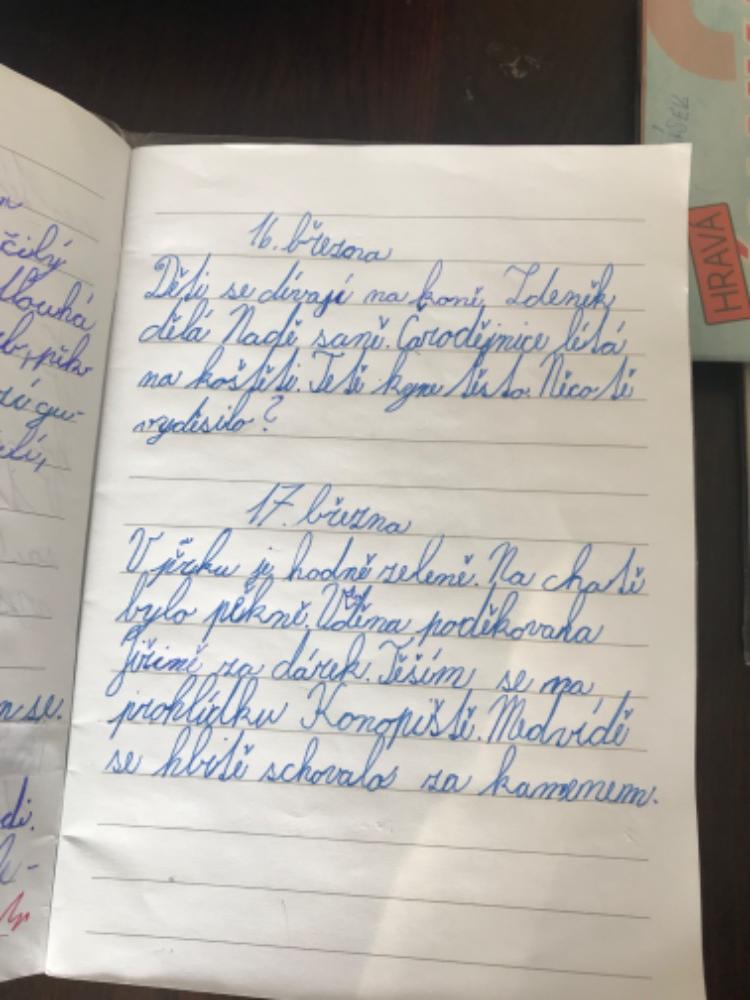 16. března
Děti se dívají na koně. Zdeněk
dělá Nadě saně. Čarodějnice létá
na koštěti. Teti kyne těsto. Něco tě
vyděsilo?
17. března
V jěrku je hodně zeleně. Na chatě
bylo pěkně. Vděna poděkovana
Jiřině za dárek. Těším se na
prohlídku Konopiště. Medvídě
se hbitě schovalo za kamenem.
čilý
dlouhá
n se.
di.
HRAVÁ